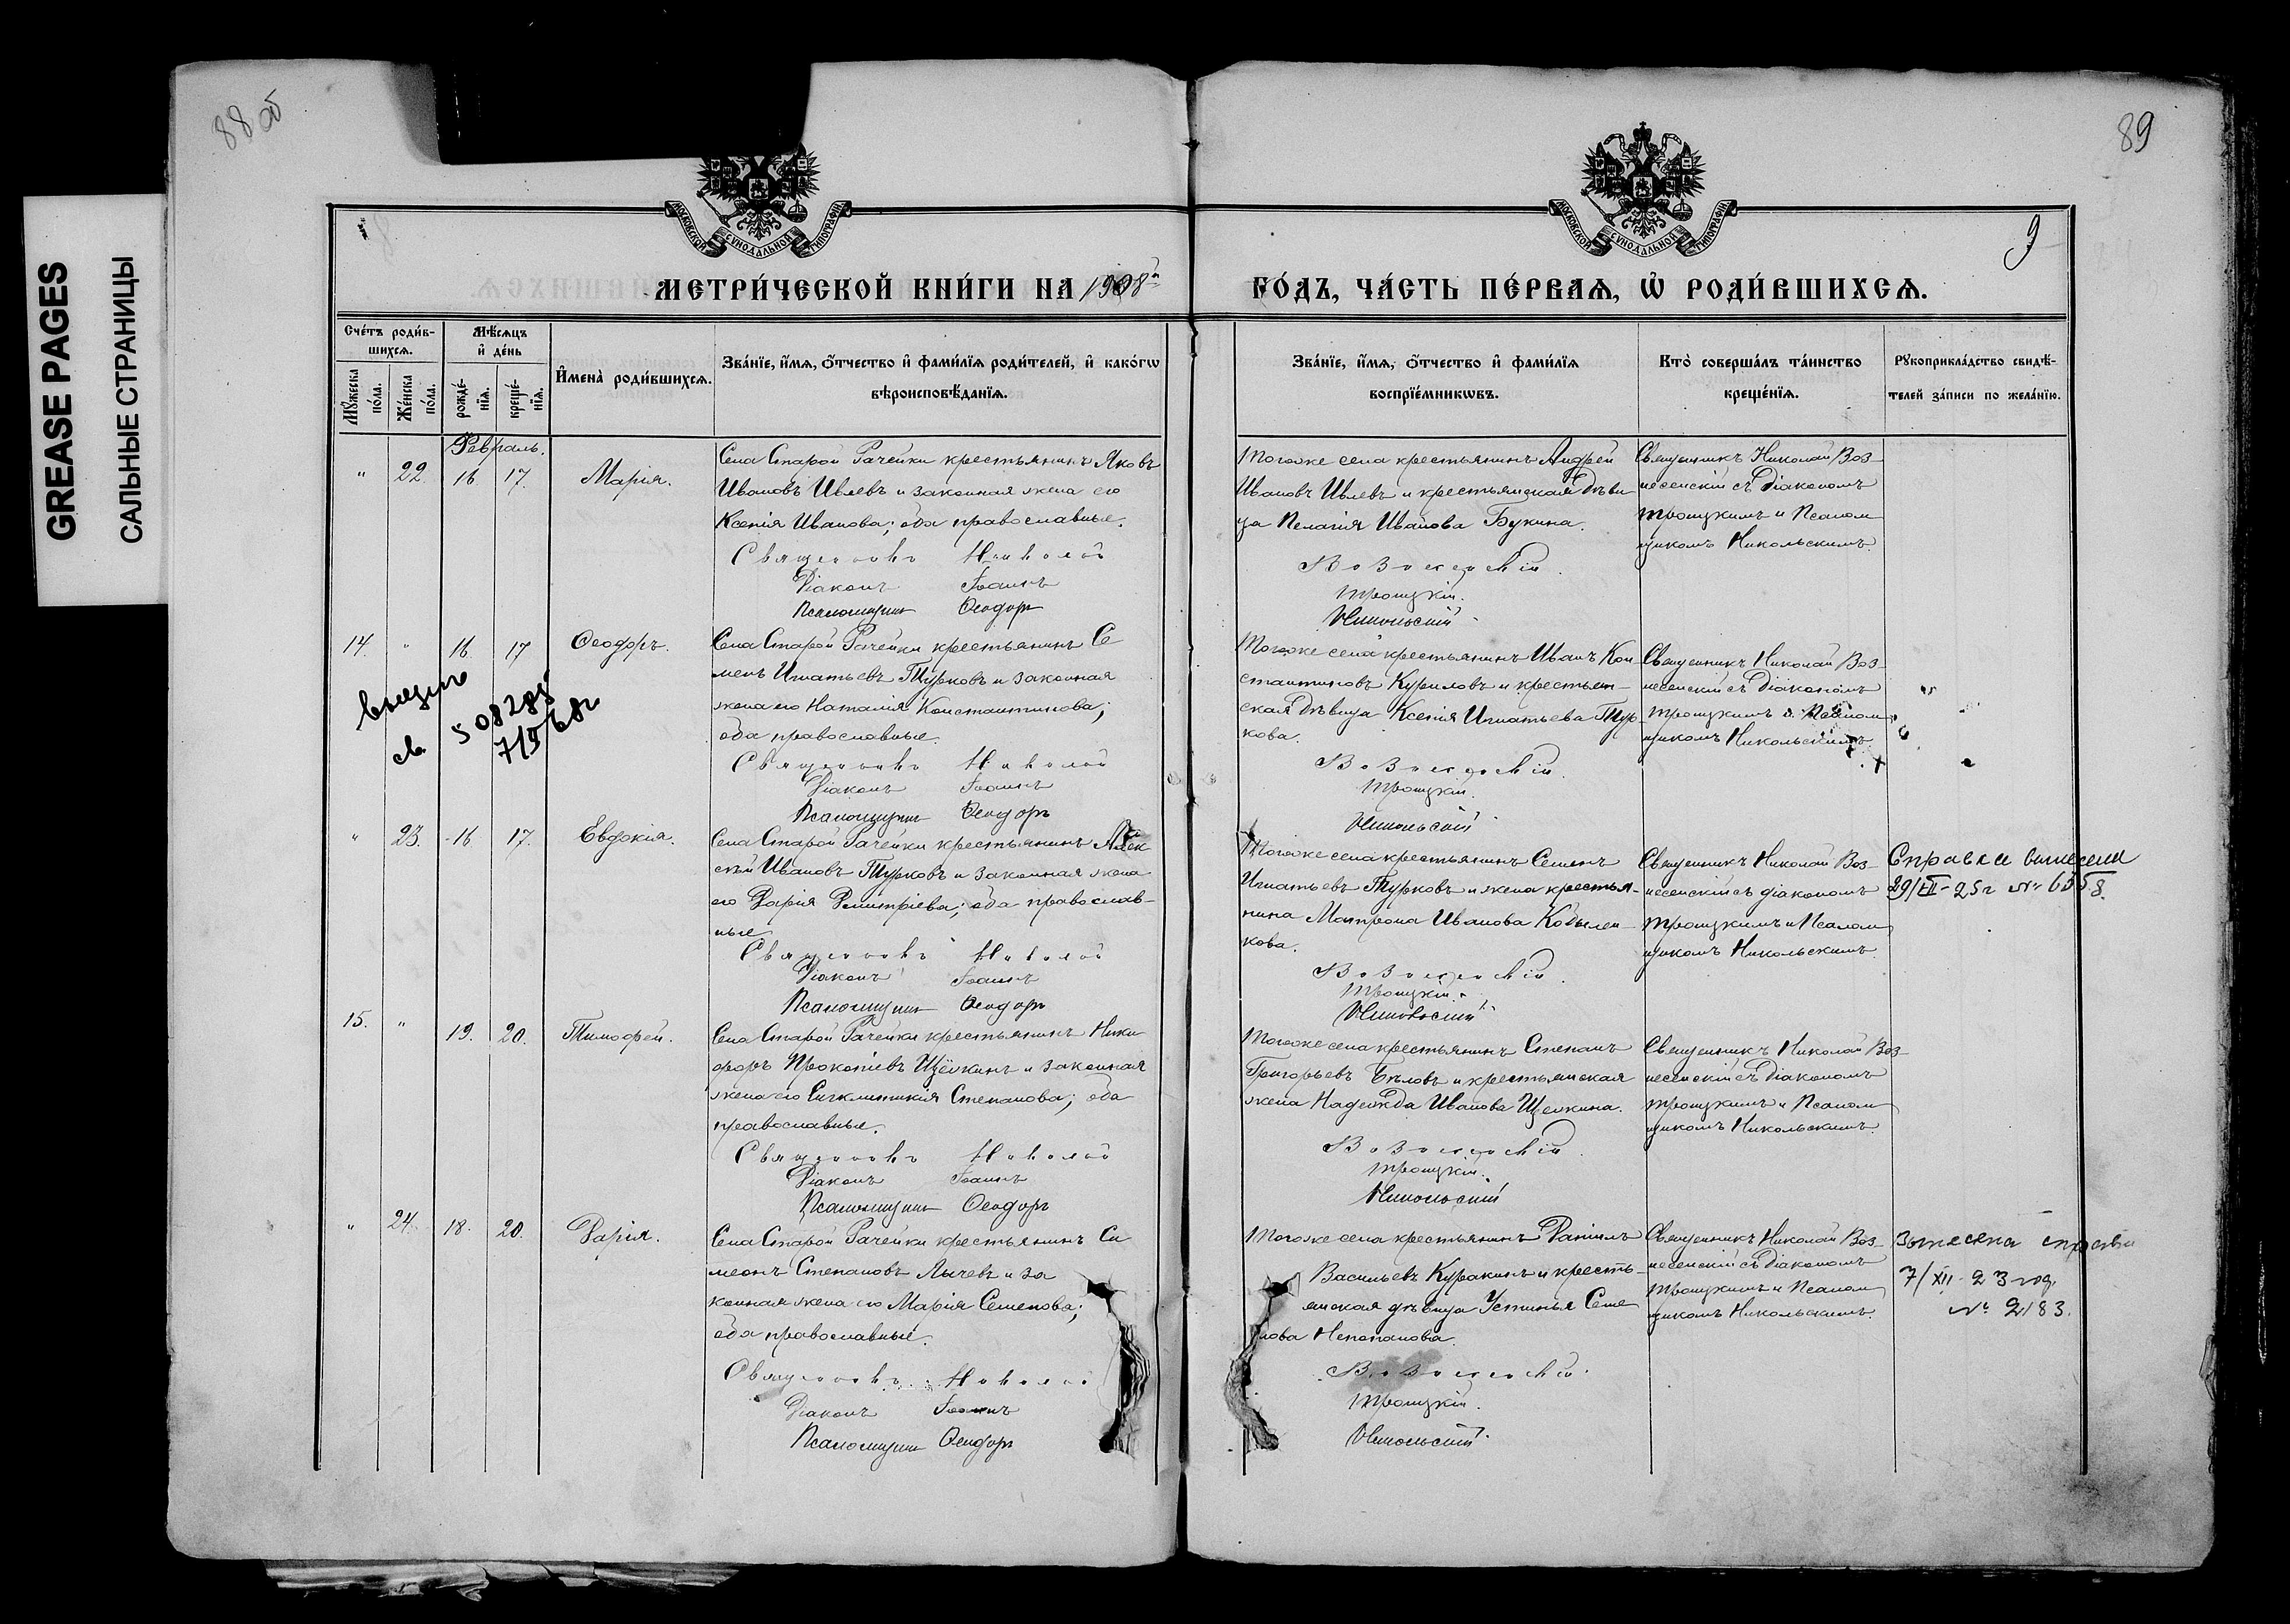 88 об
89
GREASE PAGES
САЛЬНЫЕ СТРАНИЦЫ
МОСКОВСКОЙ СѴНОДАЛЬНОЙ ТИПОГРАФІИ
МОСКОВСКОЙ СѴНОДАЛЬНОЙ ТИПОГРАФІИ
9
МЕТРИ́ЧЕСКОЙ КНИ́ГИ НА 1908й
ГО́ДЪ, ЧА́СТЬ ПЕ́РВАѦ, Ѡ РОДИ́ВШИХСѦ.
Сче́тъ роди́в-
шихсѧ.
Мꙋ́жеска по́ла.
Же́нска по́ла.
Мѣ́сѧцъ
и҆ де́нь
рожде́-
нїѧ.
креще́-
нїѧ.
И҆мена̀ роди́вшихсѧ.
Зва́нїе, и҆́мѧ, ѻ҆́тчество и҆ фами́лїѧ роди́телей, и҆ како́гѡ
вѣроисповѣ́данїѧ.
Зва́нїе, и҆́мѧ, ѻ҆́тчество и҆ фами́лїѧ
воспрїе́мникѡвъ.
Кто̀ соверша́лъ та́инство
креще́нїѧ.
Рꙋкоприкла́дство свидѣ́-
телей за́писи по жела́нїю.
Февраль.
" 22. 16. 17. Марія.
Села Старой Рачейки крестьянинъ Яковъ
Ивановъ Ивлевъ и законная жена его
Ксенія Иванова; оба православные.
Священникъ Николай
Діаконъ Іоаннъ
Псаломщикъ Ѳеодоръ
Тогоже села крестьянинъ Андрей
Ивановъ Ивлевъ и крестьянская дѣви
ца Пелагія Иванова Букина.
Вознесенскій.
Троицкій.
Никольскій
Священникъ Николай Воз-
несенскій съ Діакономъ
Троицкимъ и Псалом
щикомъ Никольскимъ.
14. " 16. 17 Ѳеодоръ.
св. 508285
7/V 68г
Села Старой Рачейки крестьянинъ Се
менъ Игнатьевъ Турковъ и законная
жена его Наталія Константинова;
оба православные.
Священникъ Николай
Діаконъ Іоаннъ
Псаломщикъ Ѳеодоръ
Тогоже села крестьянинъ Иванъ Кон
стантиновъ Куриловъ и крестьян-
ская дѣвица Ксенія Игнатьева Тур-
кова.
Вознесенскій.
Троицкій.
Никольскій
Священникъ Николай Воз-
несенскій съ Діакономъ
Троицкимъ и Псалом
щикомъ Никольскимъ
" 23. 16 17. Евдокія.
Села Старой Рачейки крестьянинъ Алек
сѣй Ивановъ Турковъ и законная жена
его Дарія Димитріева; оба православ-
ные
Священникъ Николай
Діаконъ Іоаннъ
Псаломщикъ Ѳеодоръ
Тогоже села крестьянинъ Семенъ
Игнатьевъ Турковъ и жена крестья-
нина Матрона Иванова Кобылен
кова.
Вознесенскій.
Троицкій.
Никольскій
Священникъ Николай Воз-
несенскій съ діакономъ
Троицкимъ и Псалом
щикомъ Никольскимъ.
Справка вынесена
29/III-25г № 6358.
15. " 19. 20. Тимофей.
Села Старой Рачейки крестьянинъ Ники
форъ Прокопіевъ Щёлкинъ и законная
жена его Сигклитикія Степанова; оба
православные.
Священникъ Николай
Діаконъ Іоаннъ
Псаломщикъ Ѳеодоръ
Тогоже села крестьянинъ Степанъ
Григорьевъ Бѣловъ и крестьянская
жена Надежда Иванова Щелкина.
Вознесенскій.
Троицкій.
Никольскій
Священникъ Николай Воз-
несенскій съ Діакономъ
Троицкимъ и Псалом
щикомъ Никольскимъ.
" 24. 18. 20. Дарія.
Села Старой Рачейки крестьянинъ Си
меонъ Степановъ Лычевъ и за
конная жена его Марія Семенова;
оба православные.
Священникъ Николай
Діаконъ Іоаннъ
Псаломщикъ Ѳеодоръ
Тогоже села крестьянинъ Даніилъ
Васильевъ Куракинъ и кресть-
янская дѣвица Устинья Семе
нова
Вознесенскій.
Троицкій.
Никольскій.
Священникъ Николай Воз-
несенскій съ Діакономъ
Троицкимъ и Псалом
щикомъ Никольскимъ.
Вынесена справка
7/XII-23 год.
№ 2183.